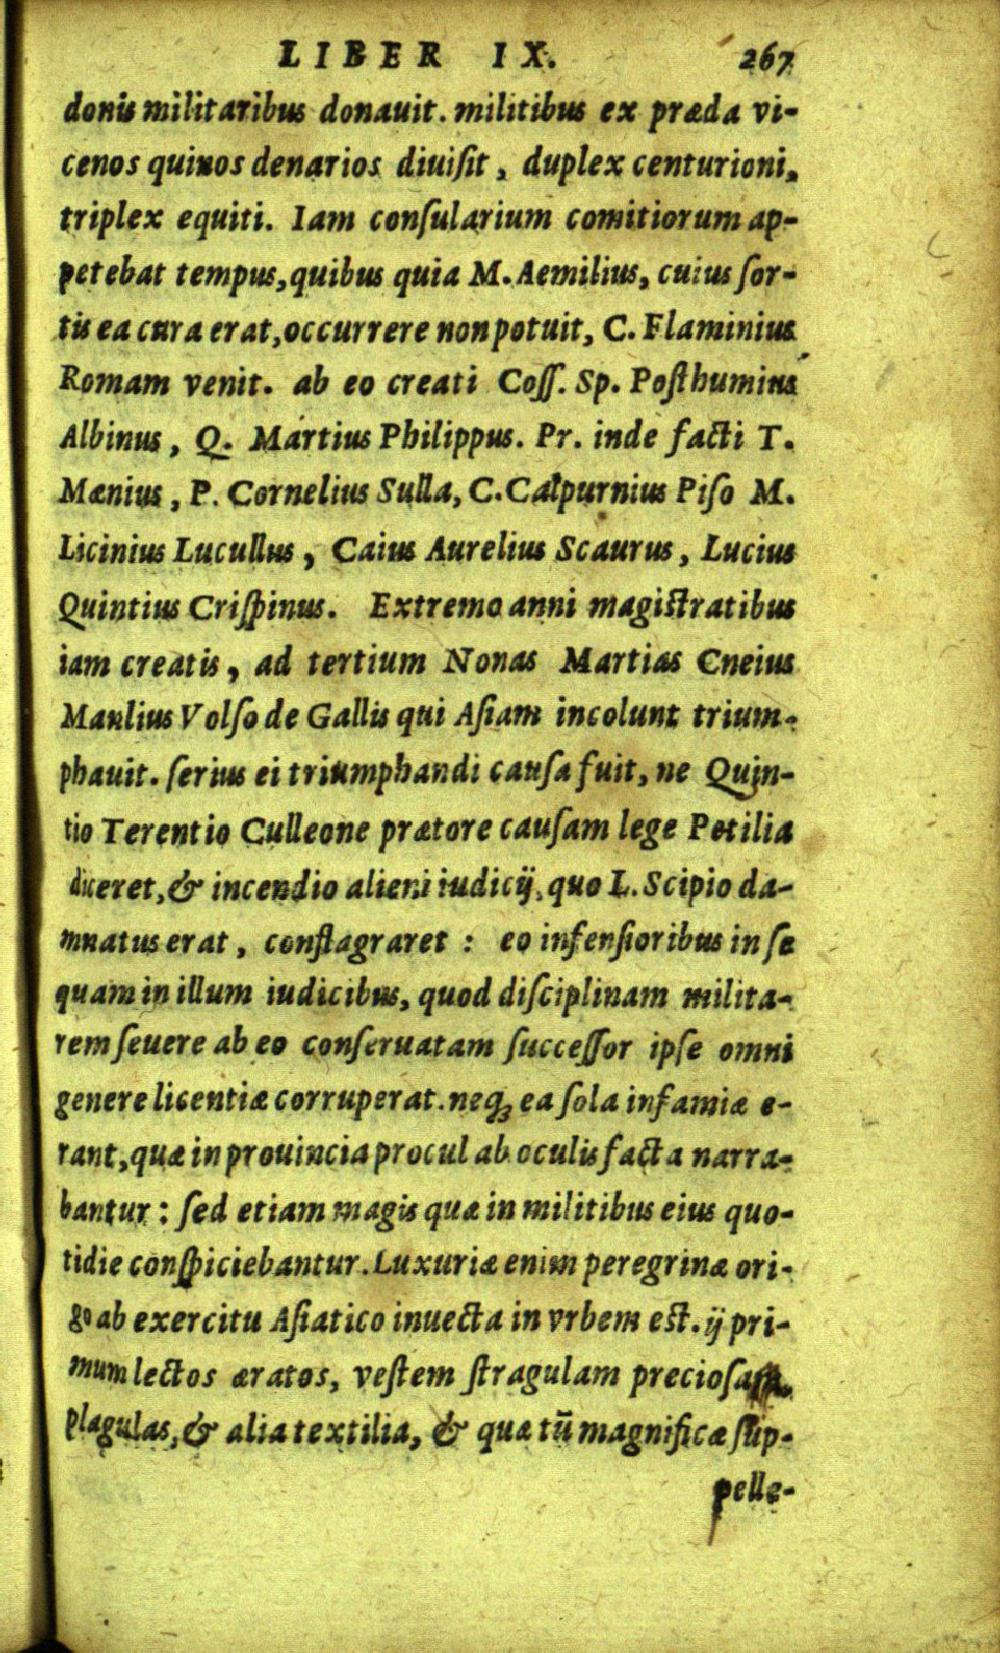 LIBER IX. 267
donis militaribus donauit. militibus ex præda vi-
cenos quinos denarios diuiſit, duplex centurioni,
triplex equiti. Iam conſularium comitiorum ap-
petebat tempus, quibus quia M. Aemilius, cuius ſor-
tis ea cura erat, occurrere non potuit, C. Flaminius
Romam venit. ab eo creati Coſſ. Sp. Poſthumius
Albinus, Q. Martius Philippus. Pr. inde facti T.
Mænius, P. Cornelius Sulla, C. Calpurnius Piſo M.
Licinius Lucullus, Caius Aurelius Scaurus, Lucius
Quintius Criſpinus. Extremo anni magiſtratibus
iam creatis, ad tertium Nonas Martias Cneius
Manlius Volſo de Gallis qui Aſiam incolunt trium-
phauit. ſerius ei triumphandi cauſa fuit, ne Quin-
tio Terentio Culleone prætore cauſam lege Petilia
diceret, & incendio alieni iudicij, quo L. Scipio da-
mnatus erat, conflagraret : eo infenſioribus in ſe
quam in illum iudicibus, quod diſciplinam milita-
rem ſeuere ab eo conſeruatam ſucceſſor ipſe omni
genere licentiæ corruperat. neq; ea ſola infamiæ e-
rant, quæ in prouincia procul ab oculis facta narra-
bantur : ſed etiam magis quæ in militibus eius quo-
tidie conſpiciebantur. Luxuriæ enim peregrinæ ori-
go ab exercitu Aſiatico inuecta in vrbem eſt. ij pri-
mum lectos æratos, veſtem ſtragulam precioſam,
plagulas, & alia textilia, & quæ tū magnificæ ſup-
pelle-